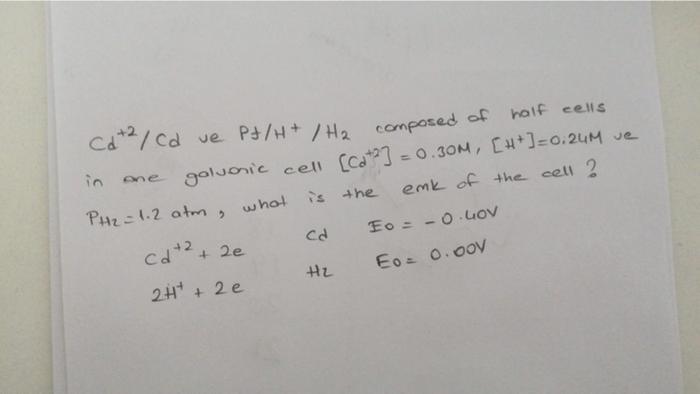 Cd+2/Cd ve Pt/H+ /H2 composed of half cells
in one galvonic cell [Cd+2] = 0.30M, [H+]=0.24M ve
PH2=1.2 atm, what is the emk of the cell?
Cd+2 + 2e Cd Eo= -0.40V
2H+ + 2e H2 Eo= 0.00V